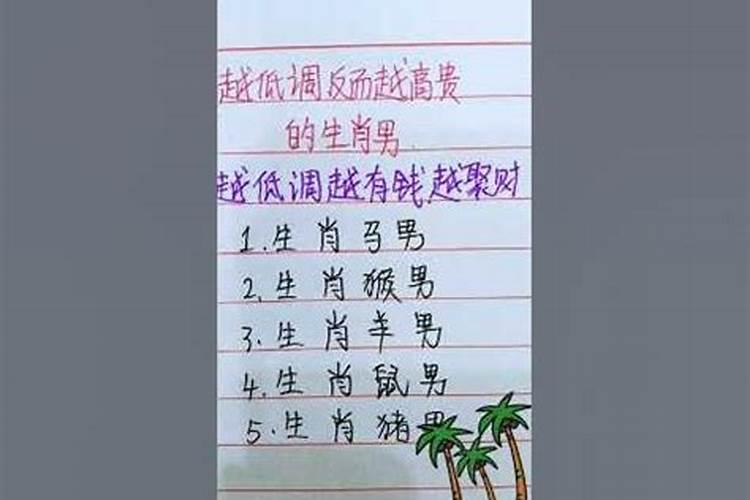 越低调反而越高贵
的生肖男
越低调越有钱越聚财
1.生肖马男
2.生肖猴男
3.生肖羊男
4.生肖鼠男
5.生肖猪男